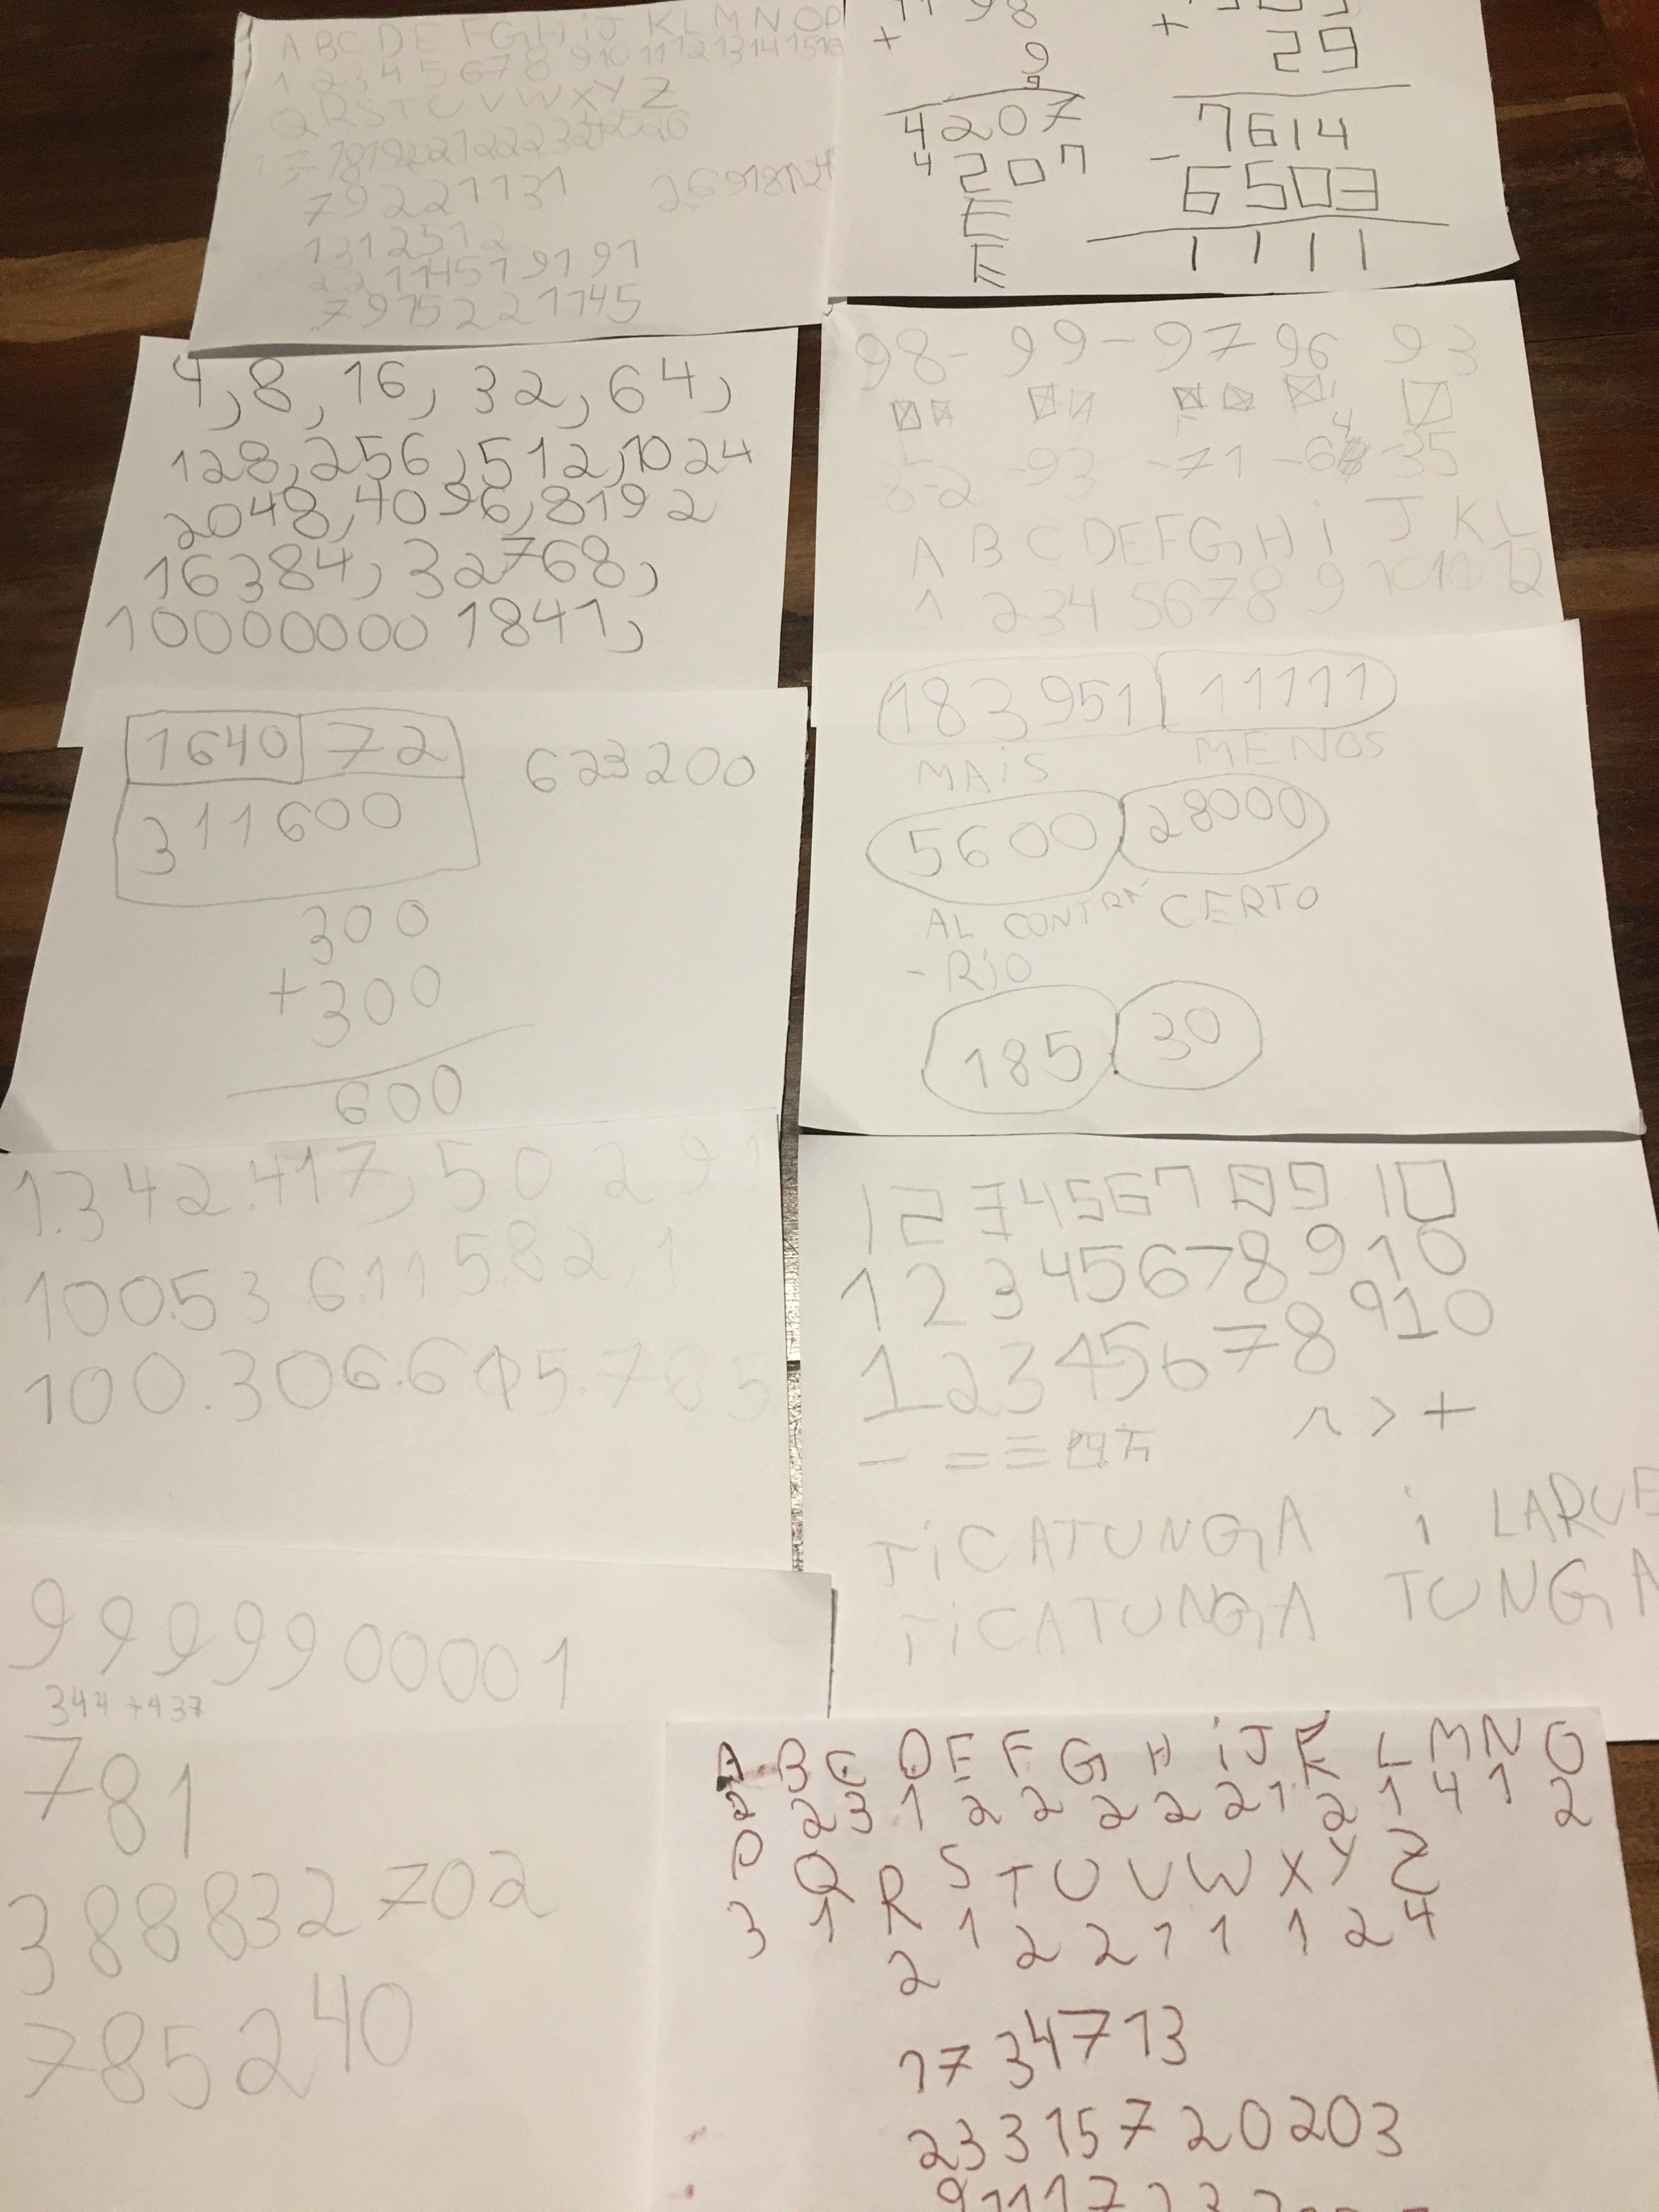 A B C D E F G H i J K L M N O P
1 2 3 4 5 6 7 8 9 10 11 12 13 14 15 16
Q R S T U V W X Y Z
79221131
1312512
22 11451 91 91
7915221145
+ 9
4207
4207
+ 29
7614
- 6503
1111
4, 8, 16, 32, 64,
128, 256, 512, 1024
2048, 4096, 8192
16384, 32768,
10000000 1841,
98- 99- 97 96 93
-93 -71 -35
A B C D E F G H i J K L
1 2 3 4 5 6 7 8 9 10 10 12
1640 72
311600
623200
300
+300
600
183951 11111
MAiS MENOS
5600 28000
AL CONTRA CERTO
-RiO
185 30
1.342.417, 50 2 9 1
100.53 6.11 5.82 1
100.306.615.765
1 2 3 4 5 6 7 8 9 10
1 2 3 4 5 6 7 8 9 10
1 2 3 4 5 6 7 8 9 10
> +
- = ≡
TiCATUNGA i LARUE
TiCATUNGA TUNGA
9999900001
344+437
781
388832702
785240
A B C D E F G H i J K L M N O
2 2 3 1 2 2 2 2 2 1 2 1 4 1 2
P Q R S T U V W X Y Z
3 1 2 1 2 2 1 1 1 2 4
1734713
23315720203